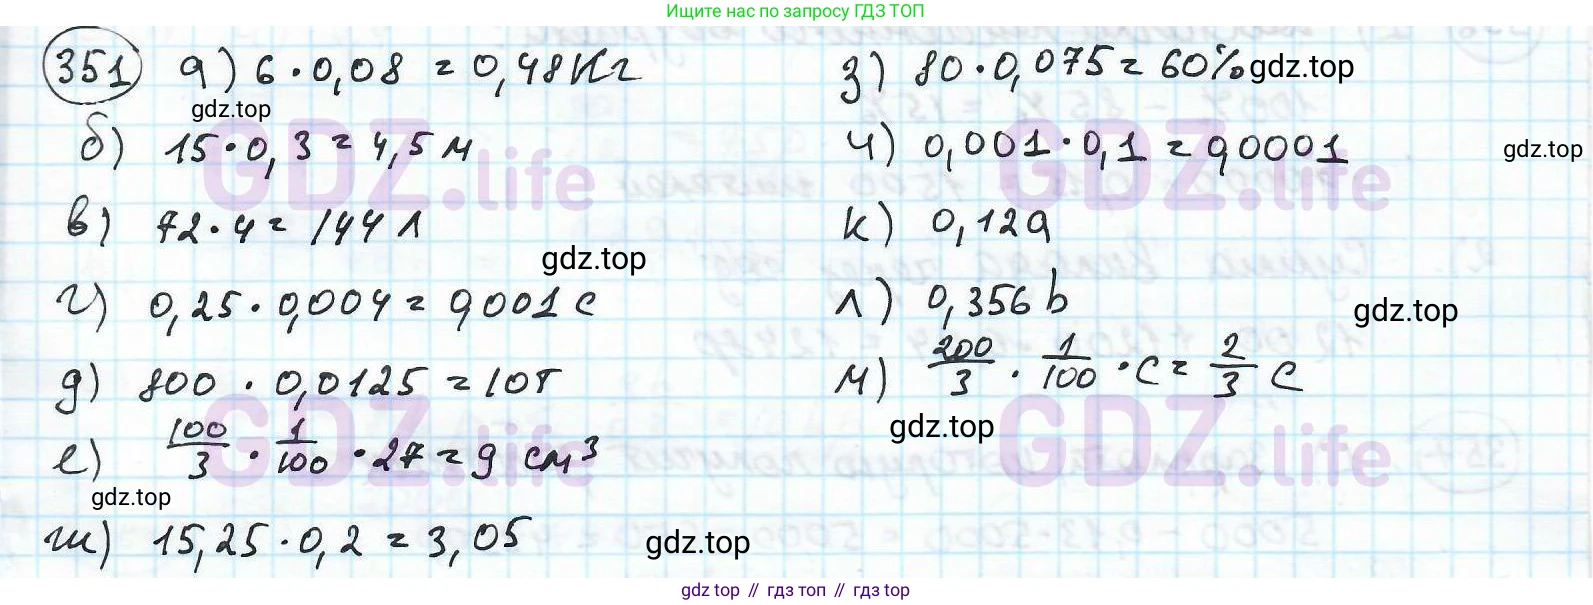 Ищите нас по запросу ГДЗ ТОП
351 а) 6 · 0,08 = 0,48 Кг
gdz.top
б) 15 · 0,3 = 4,5 м
в) 72 · 4 = 144 л
gdz.top
г) 0,25 · 0,004 = 0,001 с
д) 800 · 0,0125 = 10 т
е) 100/3 · 1/100 · 27 = 9 см³
gdz.top
ж) 15,25 · 0,2 = 3,05
gdz.top
з) 80 · 0,075 = 60%
gdz.top
и) 0,001 · 0,1 = 0,0001
gdz.top
к) 0,12a
л) 0,356 b
gdz.top
м) 200/3 · 1/100 · c = 2/3 c
gdz.top
GDZ.life
GDZ.life
GDZ.life
GDZ.life
gdz top // гдз топ // gdz top